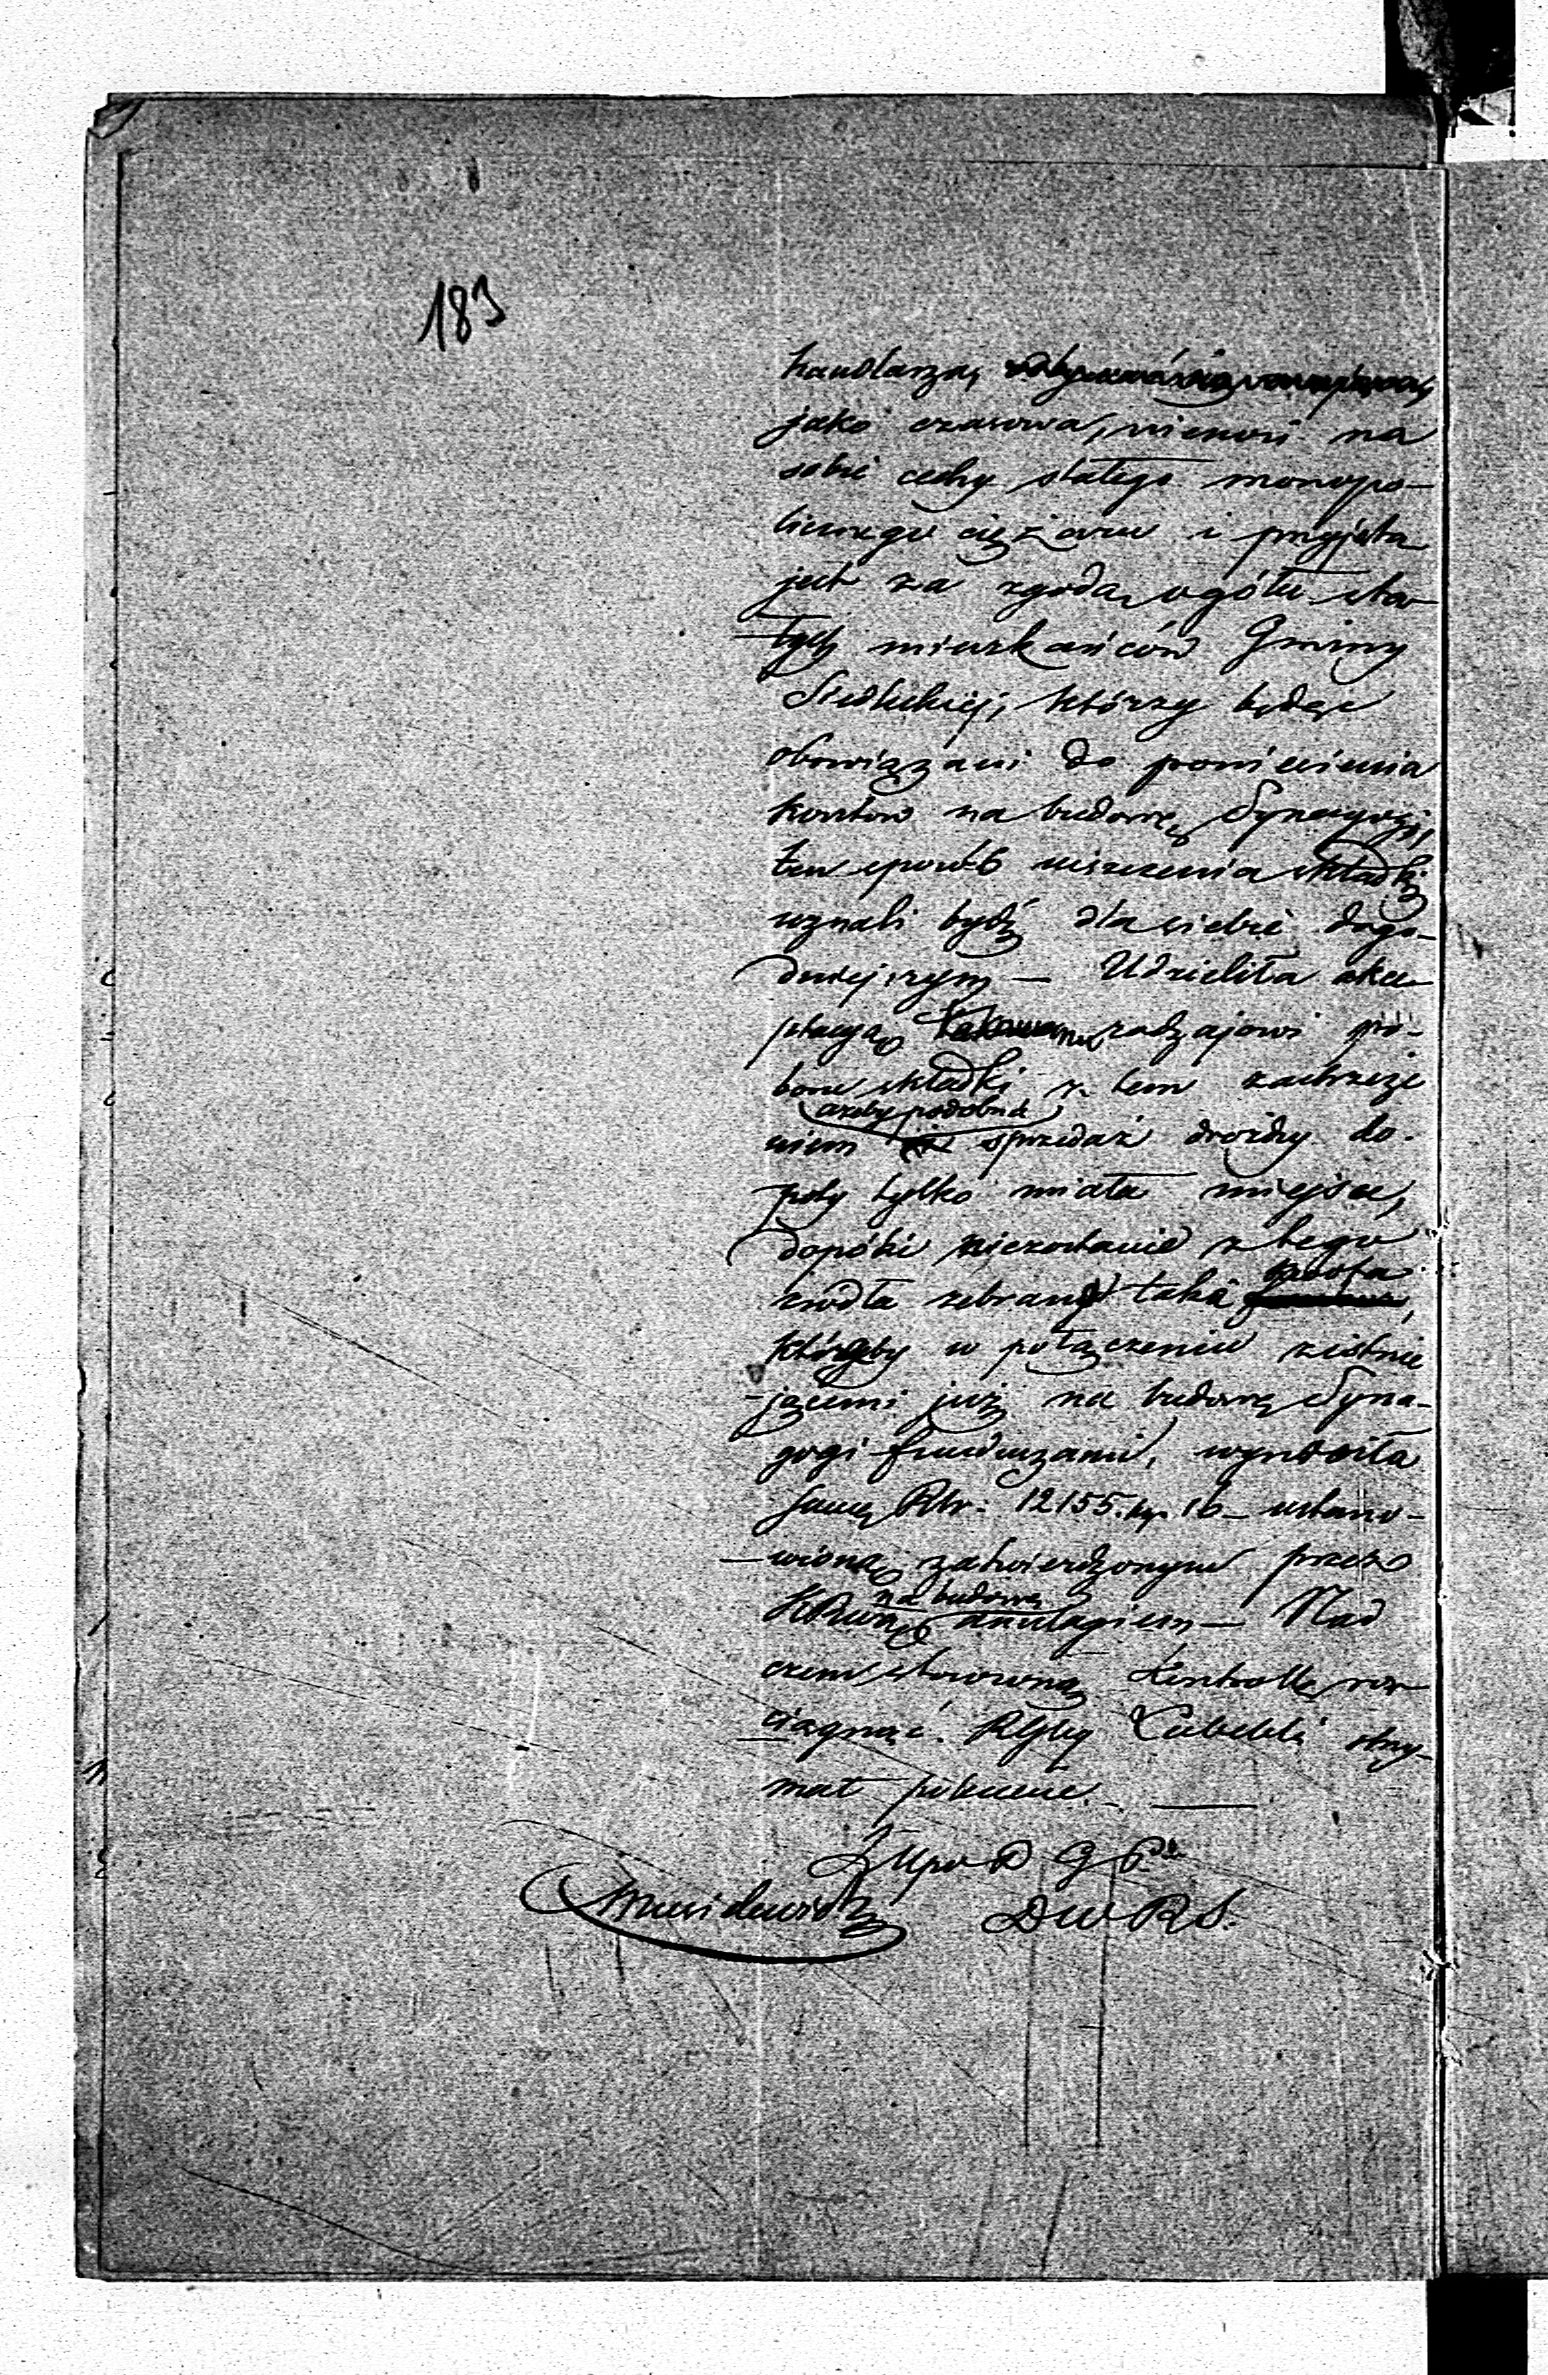 183
handlarza,
jako czasowa, nienosi na
sobie cechy stałego monopo-
licznego ciężaru i przyjęta
jest za zgodą ogółu sta-
łych mieszkańców Gminy
Siedleckiej, którzy będąc
obowiązani do poniesienia
kosztów na budowę Synagogi,
ten sposób uiszczenia składki
uznali bydź dla siebie dogo-
dniejszym — Udzieliła akce-
ptacyą rodzajowi po-
boru składki z tem zastrzeże
ażeby podobna
niem sprzedaż drożdży do-
poty tylko miała miejsce,
dopóki niezostanie z tego
kwota
zrodła zebraną taka
któraby w połączeniu z istnie
-jącemi już na budowę Syna-
gogi funduszami, wyrównała
summę Rbr. 12155. kp. 16 — ustano-
-wioną zatwierdzonym przez
na budowę
anszlagiem — Nad
czem stosowną kontrollę roz-
ciągnąć. Lubelski otrzy-
mał polecenie. —
D W R S.